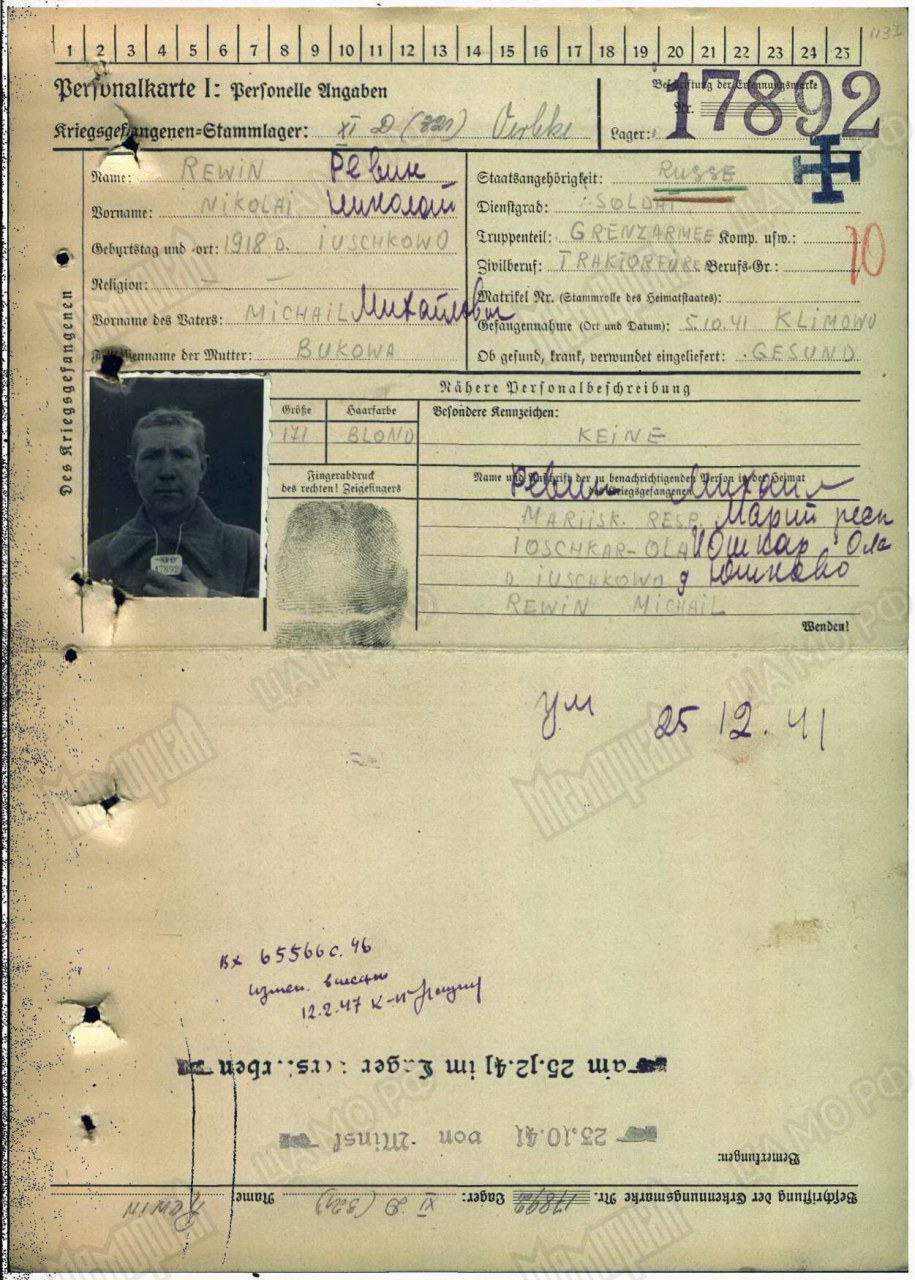 113
1 2 3 4 5 6 7 8 9 10 11 12 13 14 15 16 17 18 19 20 21 22 23 24 25
Personalkarte I: Personelle Angaben
Beschriftung der Erkennungsmarke
Nr. 17892
Kriegsgefangenen=Stammlager: XI D (321) Oerbke
Lager:
Des Kriegsgefangenen
Name: REWIN Ревин
Vorname: NIKOLAI Николай
Geburtstag und =ort: 1918 D. IUSCHKOWO
Religion: — —
Vorname des Vaters: MICHAIL Михайлович
Familienname der Mutter: BUKOWA
Staatsangehörigkeit: RUSSE
Dienstgrad: SOLDAT
Truppenteil: GRENZARMEE Komp. usw.:
Zivilberuf: TRAKTORFÜRE Berufs=Gr.: 10
Matrikel Nr. (Stammrolle des Heimatstaates):
Gefangennahme (Ort und Datum): 5.10.41 KLIMOWO
Ob gesund, krank, verwundet eingeliefert: GESUND
Nähere Personalbeschreibung
Größe
171
Haarfarbe
BLOND
Besondere Kennzeichen:
KEINE
Fingerabdruck
des rechten! Zeigefingers
17892
Name und Anschrift der zu benachrichtigenden Person in der Heimat
des Kriegsgefangenen
Ревин Михаил
MARIISK. RESP. Марий респ
IOSCHKAR-OLA Йошкар Ола
D. IUSCHKOWO д Юшково
REWIN MICHAIL
Wenden!
ум 25 12. 41
Вх 65566с. 46
измен. внесены
12.2.47
am 25.12.41 im Lager verstorben
23.10.41 von Minsk
Bemerkungen:
Beschriftung der Erkennungsmarke Nr. 17892 Lager: XI D (321) Name: REWIN
Мемориал
ЦА МО РФ